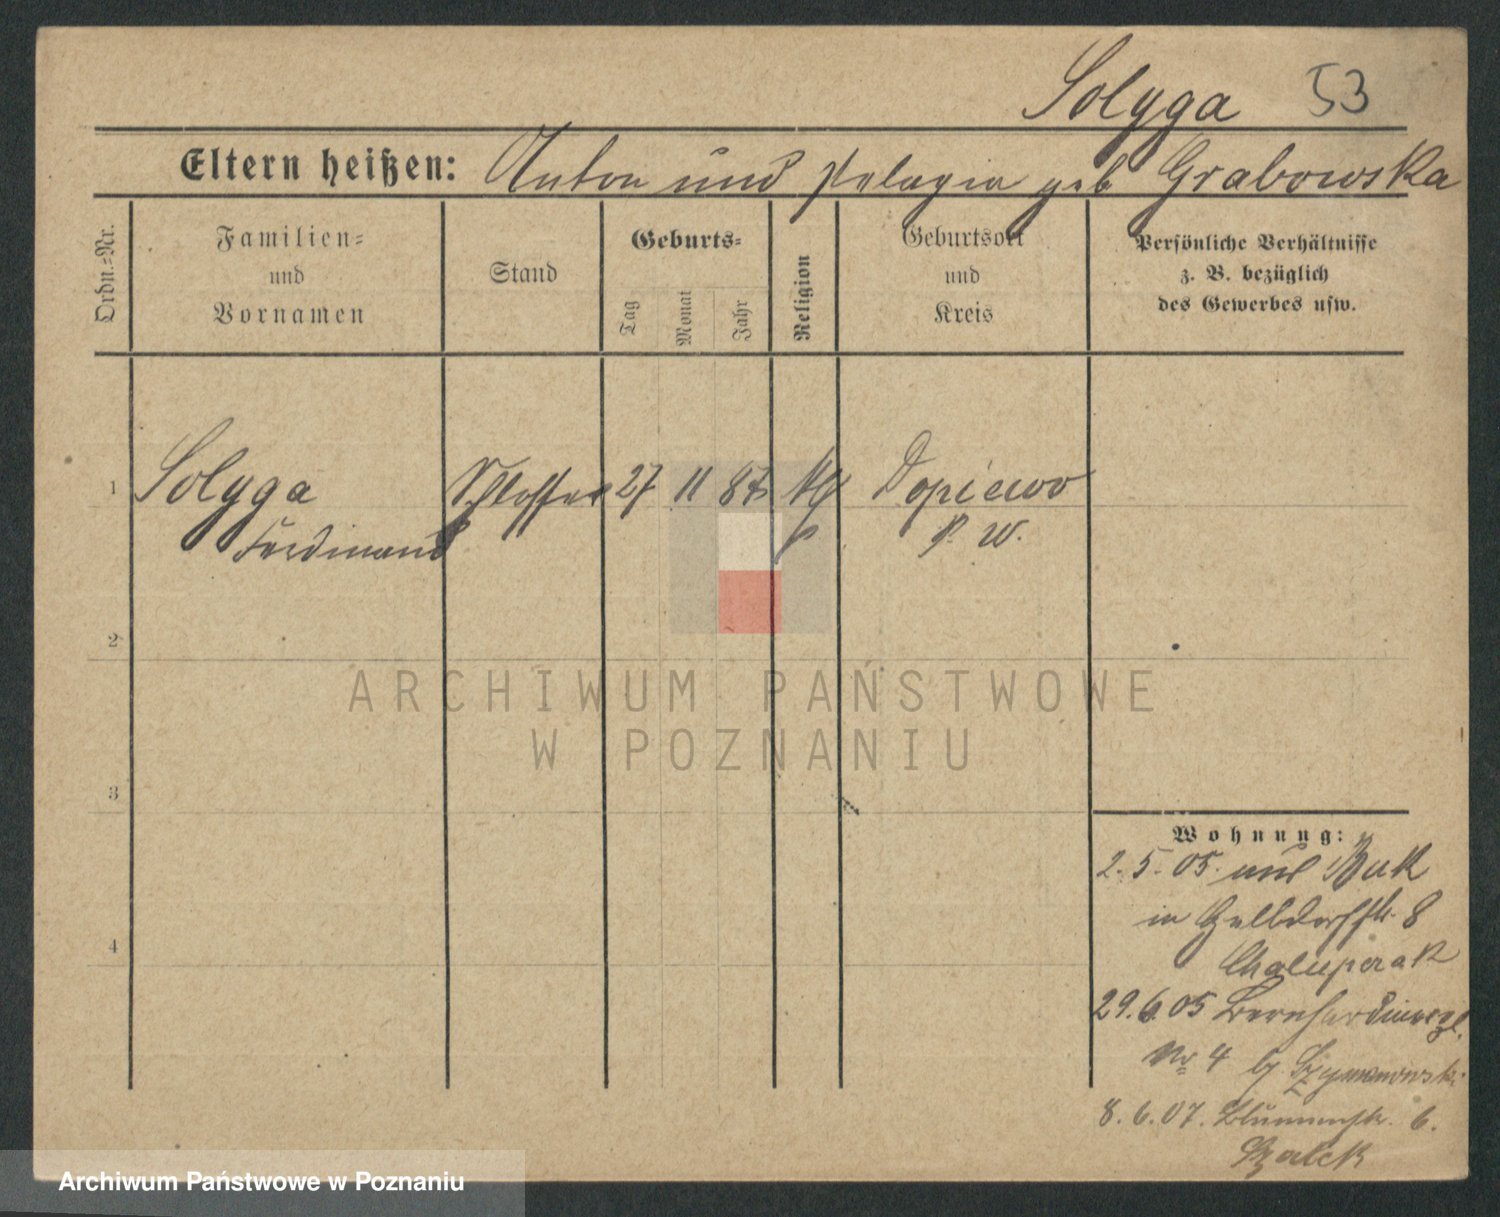 Solyga 53
Eltern heißen: Anton und Pelagia geb Grabowska
Ordn.-Nr.
Familien-
und
Vornamen
Stand
Geburts-
Tag
Monat
Jahr
Religion
Geburtsort
und
Kreis
Persönliche Verhältnisse
z. B. bezüglich
des Gewerbes usw.
1 Solyga Schlosser 27 11 87 Dopiewo
Ferdinand P. W.
2
3
4
ARCHIWUM PAŃSTWOWE
W POZNANIU
Wohnung:
2. 5. 05. aus Buk
in 8
Chaluperak
29. 6. 05 Bernhardinerpl.
Nr 4 b/ Szymanowski
8. 6. 07. Blumenstr. 6.
Archiwum Państwowe w Poznaniu